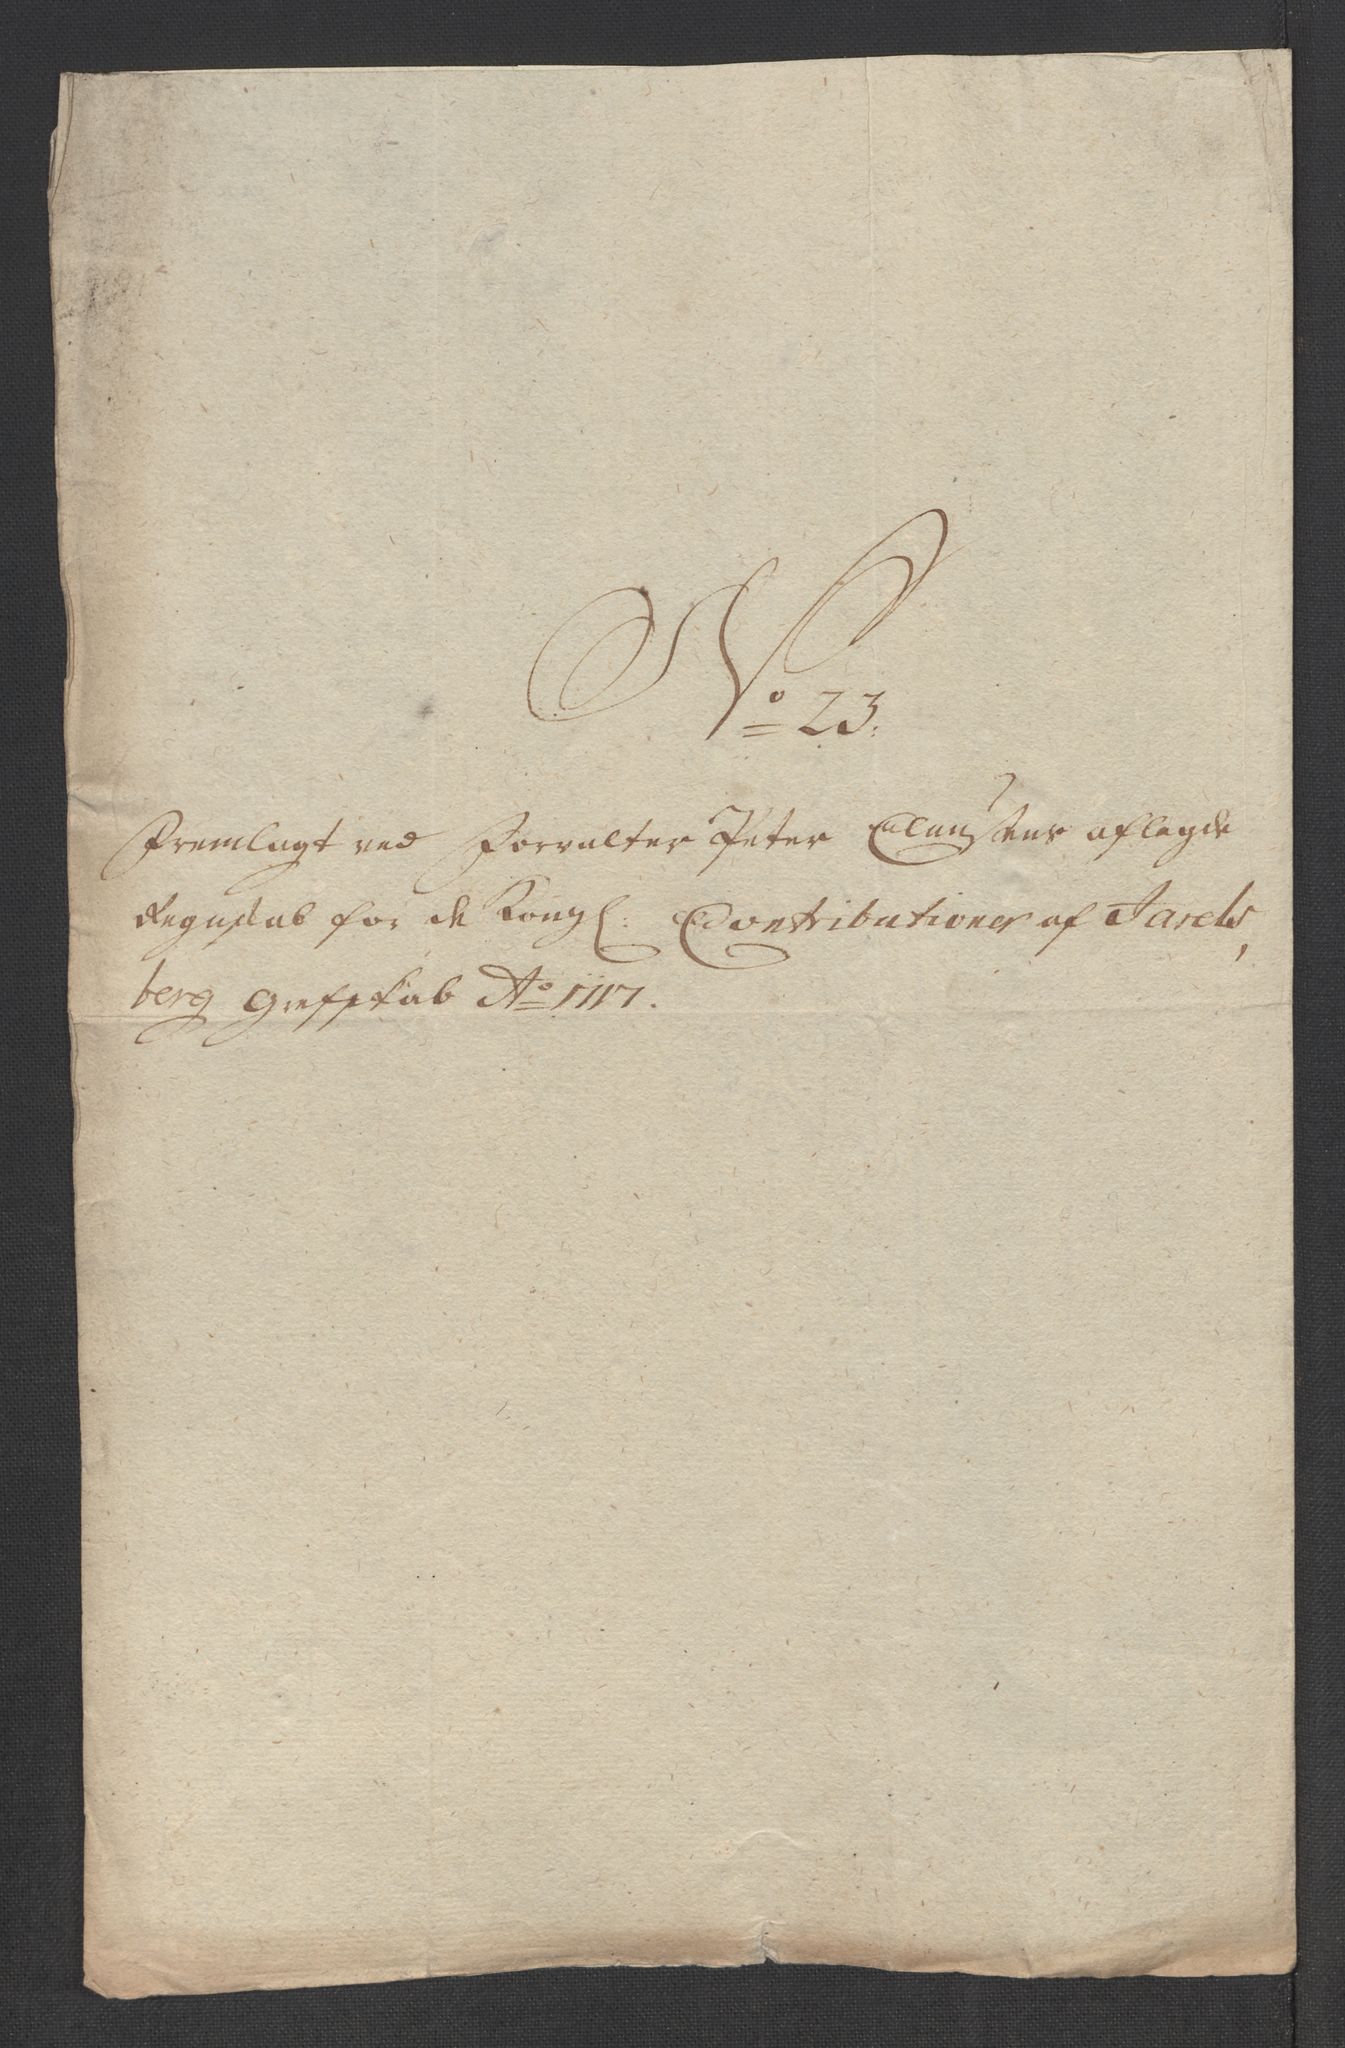 No 23.
Fremlagt ved Forvalter Peter Clausens aflagde
Regnskab for de Kongl: Contributioner af Jarls,
berg Grefskab Ao 1717.